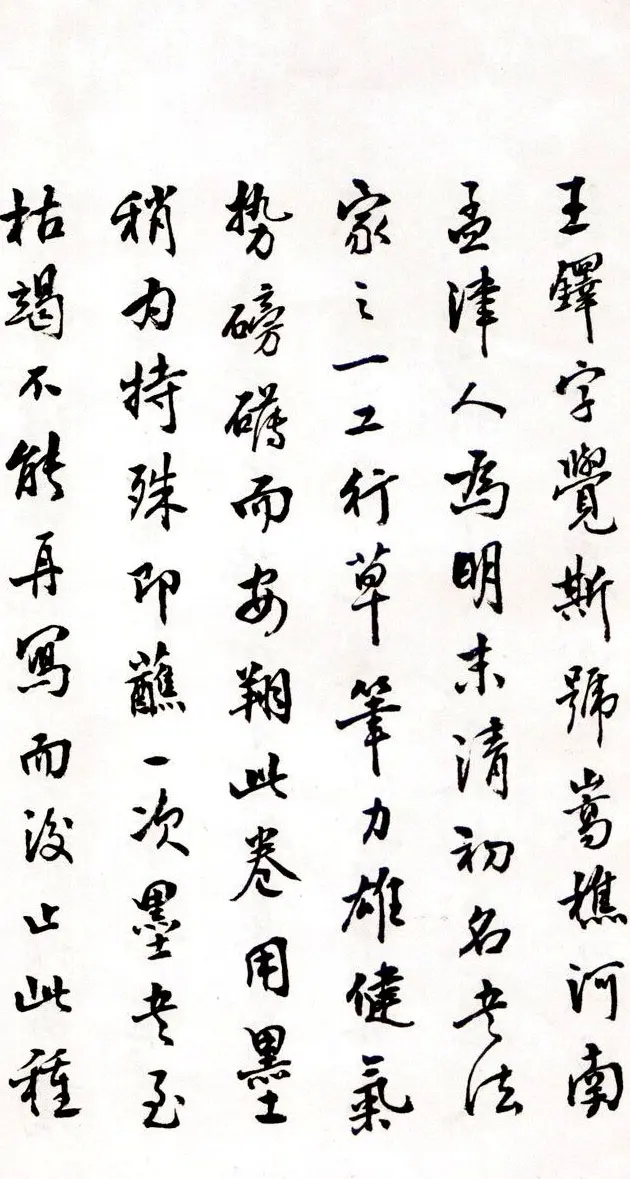 王鐸字覺斯號嵩樵河南
孟津人為明末清初名書法
家之一工行草筆力雄健氣
勢磅礴而安翔此卷用墨
稍为特殊即蘸一次墨書至
枯竭不能再寫而後止此種